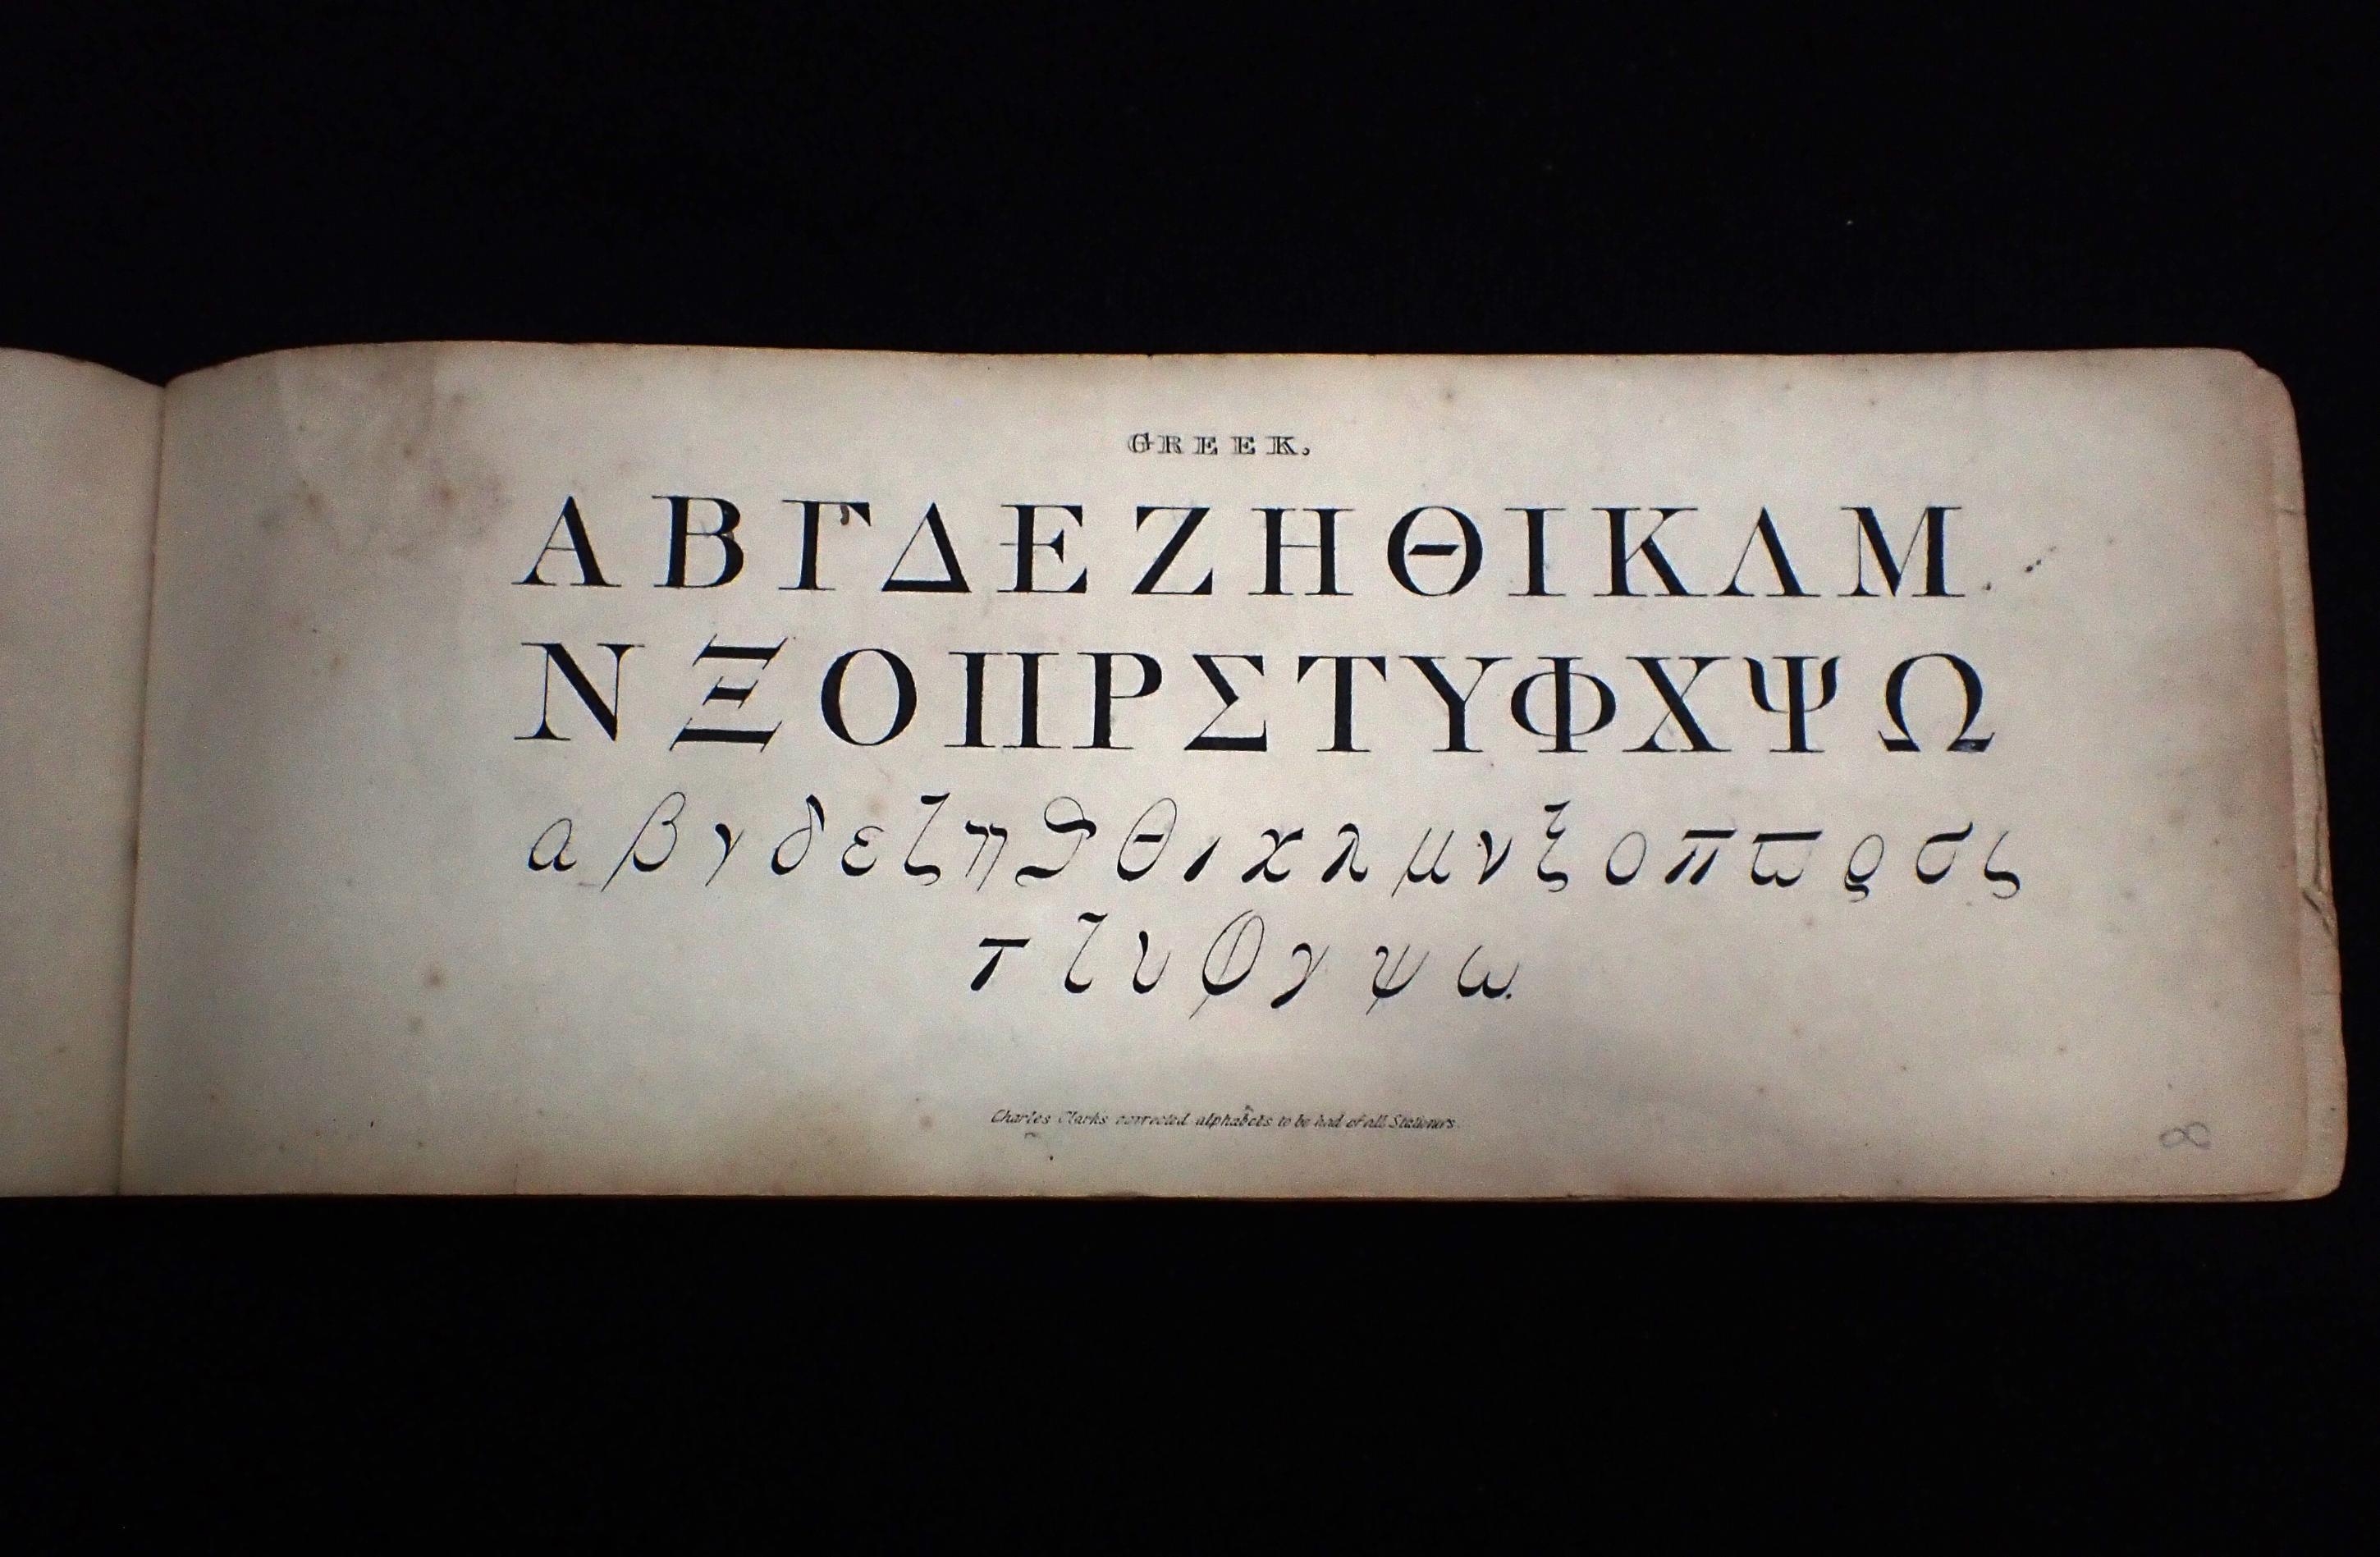 GREEK.
Α Β Γ Δ Ε Ζ Η Θ Ι Κ Λ Μ
Ν Ξ Ο Π Ρ Σ Τ Υ Φ Χ Ψ Ω
α β γ δ ε ζ η ϑ θ ι κ λ μ ν ξ ο π ϖ ρ σ ς
τ ϛ υ φ χ ψ ω.
Charles Clarks corrected alphabets to be had of all Stationers.
8